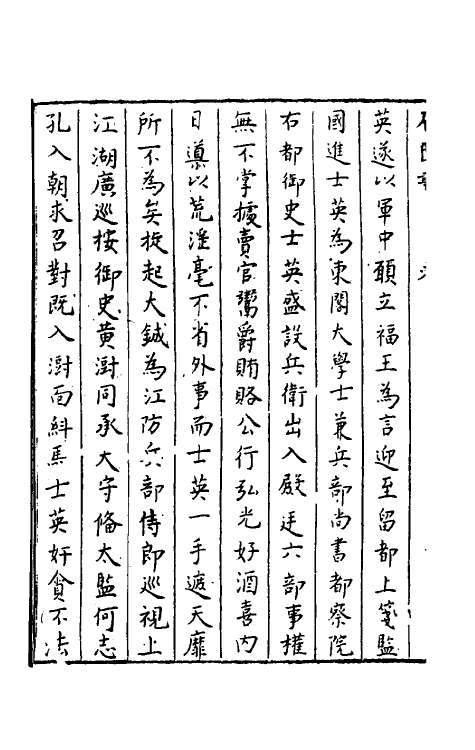 英遂以軍中願立福王為言迎至留都上箋監
國進士英為東閣大學士兼兵部尚書都察院
右都御史士英盛設兵衛出入殿廷六部事權
無不掌攄賣官鬻爵賄賂公行弘光好酒喜内
日導以荒淫毫不省外事而士英一手遮天靡
所不為矣旋起大鋮為江防兵部侍郎巡視上
江湖廣巡按御史黄澍同承大守俻太監何志
孔入朝求召對既入澍面糾馬士英奸貪不法